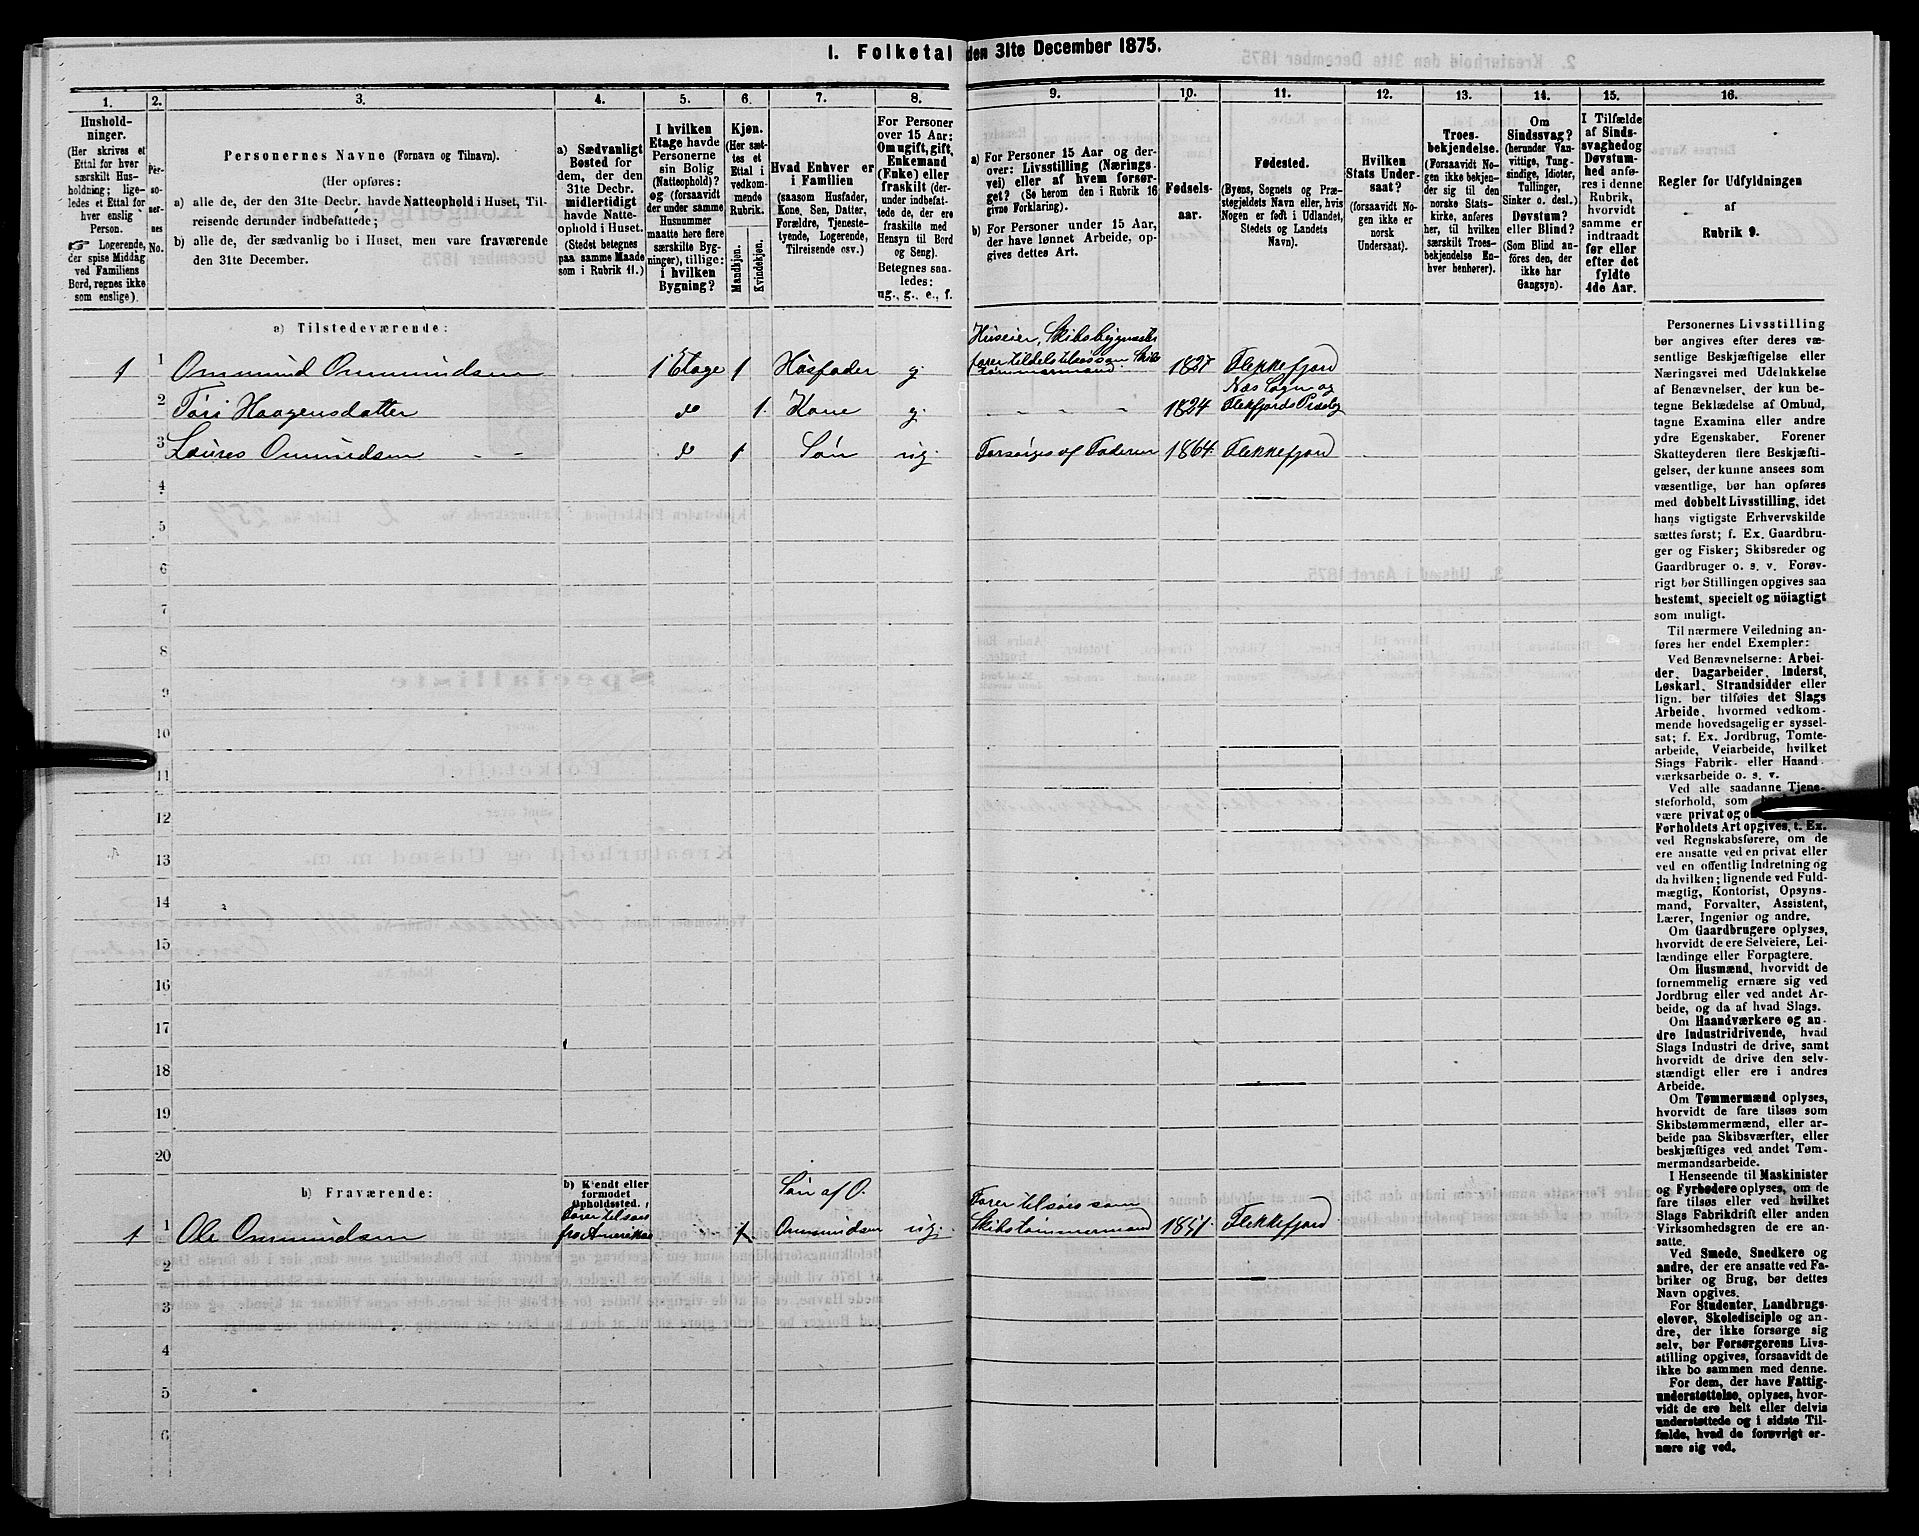 1. Folketal den 31te December 1875.
1.
2.
3.
4.
5.
6.
7.
8.
9.
10.
11.
12.
13.
14.
15.
16.
Hushold-
ninger.
(Her skrives et
Ettal for hver
særskilt Hus-
holdning; lige-
ledes et Ettal for
hver enslig
Person.
☞ Logerende,
der spise Middag
ved Familiens
Bord, regnes ikke
som enslige).
Per-
so-
ner-
nes
No.
Personernes Navne (Fornavn og Tilnavn).
(Her opføres:
a) alle de, der den 31te Decbr. havde Natteophold i Huset, Til-
reisende derunder indbefattede;
b) alle de, der sædvanlig bo i Huset, men vare fraværende
den 31te December.
a) Sædvanligt
Bosted for
dem, der den
31te Decbr.
midlertidigt
havde Natte-
ophold i Huset.
(Stedet betegnes
paa samme Maade
som i Rubrik 11.)
I hvilken
Etage havde
Personerne
sin Bolig
(Natteophold)?
og (forsaavidt
der under samme
Husnummer
maatte høre flere
særskilte Byg-
ninger), tillige:
i hvilken
Bygning?
Kjøn.
(Her sæt-
tes et
Ettal i
vedkom-
mende
Rubrik.
Mandkjøn.
Kvindekjøn.
Hvad Enhver er
i Familien
(saasom Husfader,
Kone, Søn, Datter,
Forældre, Tjeneste-
tyende, Logerende,
Tilreisende osv.)
For Personer
over 15 Aar:
Om ugift, gift,
Enkemand
(Enke) eller
fraskilt (der-
under indbefat-
tede de, der ere
fraskilte med
Hensyn til Bord
og Seng).
Betegnes saa-
ledes:
ug., g., e., f.
a) For Personer 15 Aar og der-
over: Livsstilling (Nærings-
vei) eller af hvem forsør-
get? (Se herom den i Rubrik 16
givne Forklaring).
b) For Personer under 15 Aar,
der have lønnet Arbeide, op-
gives dettes Art.
Fødsels-
aar.
Fødested.
(Byens, Sognets og Præ-
stegjeldets Navn eller, hvis
Nogen er født i Udlandet,
Stedets og Landets
Navn).
Hvilken
Stats Under-
saat?
(forsaavidt No-
gen ikke er
norsk
Undersaat).
Troes-
bekjendelse.
(Forsaavidt No-
gen ikke bekjen-
der sig til den
norske Stats-
kirke, anføres
her, til hvilken
særskilt Troes-
bekjendelse En-
hver henhører).
Om
Sindssvag?
(herunder Van-
vittige, Tung-
sindige, Idioter,
Tullinger,
Sinker o. desl.)
Døvstum?
eller Blind?
(Som Blind an-
føres den, der
ikke har
Gangsyn).
I Tilfælde
af Sinds-
svaghed og
Døvstum-
hed anfø-
res i denne
Rubrik,
hvorvidt
samme er
indtraadt
før eller
efter det
fyldte
4de Aar.
Regler for Udfyldningen
af
Rubrik 9.
a) Tilstedeværende:
Huseier, Skibsbygmester
farer tildels tilsøs som Skibs
tømmermand.
1 1 Ommund Ommundsen 1 Etage 1 Husfader g. 1827 Flekkefjord
Næs Sogn og
2 Tori Haagensdatter do 1. Kone g. - - - - 1824 Flekfjords Præstg
3 Loures Ommundsen - - do 1 Søn ug. Forsørges af Faderen 1864. Flekkefjord
4
5
6
7
8
9
10
11
12
13
14
15
16
17
18
19
20
b) Fraværende:
b) Kjendt eller
formodet
Opholdssted.
Søn af O.
Farer tilsøs som
Farer tilsøs
1 1 Ole Ommundsen fra Amerika 1 Ommundsen ug. Skibstømmermand 1851. Flekkefjord
2
3
4
5
6
Personernes Livsstilling
bør angives efter deres væ-
sentlige Beskjæftigelse eller
Næringsvei med Udelukkelse
af Benævnelser, der kun be-
tegne Beklædelse af Ombud,
tagne Examina eller andre
ydre Egenskaber. Forener
Skatteyderen flere Beskjæfti-
gelser, der kunne ansees som
væsentlige, bør han opføres
med dobbelt Livsstilling, idet
hans vigtigste Erhvervskilde
sættes først; f. Ex. Gaardbru-
ger og Fisker; Skibsreder og
Gaardbruger o. s. v. Forøv-
rigt bør Stillingen opgives saa
bestemt, specielt og nöiagtigt
som muligt.
Til nærmere Veiledning an-
føres her endel Exempler:
Ved Benævnelserne: Arbei-
der, Dagarbeider, Inderst,
Løskarl, Strandsidder eller
lign. bør tilføies det Slags
Arbeide, hvormed vedkom-
mende hovedsagelig er syssel-
sat; f. Ex. Jordbrug, Tomte-
arbeide, Veiarbeide, hvilket
Slags Fabrik- eller Haand-
værksarbeide o. s. v.
Ved alle saadanne Tjene-
steforhold, som
være privat og
Forholdets Art opgives, t. Ex.
ved Regnskabsførere, om de
ere ansatte ved en privat eller
ved en offentlig Indretning og
da hvilken; lignende ved Fuld-
mægtig, Kontorist, Opsyns-
mand, Forvalter, Assistent,
Lærer, Ingeniør og andre.
Om Gaardbrugere oplyses,
hvorvidt de ere Selveiere, Lei-
lændinge eller Forpagtere.
Om Husmænd, hvorvidt de
fornemmelig ernære sig ved
Jordbrug eller ved andet Ar-
beide, og da af hvad Slags.
Om Haandværkere og an-
dre Industridrivende, hvad
Slags Industri de drive, samt
hvorvidt de drive den selv-
stændigt eller ere i andres
Arbeide.
Om Tømmermænd oplyses,
hvorvidt de fare tilsøs som
Skibstømmermænd, eller ar-
beide paa Skibsværfter, eller
beskjæftiges ved andet Tøm-
mermandsarbeide.
I Henseende til Maskinister
og Fyrbødere oplyses, om de
fare tilsøs eller ved hvilket
Slags Fabrikdrift eller anden
Virksomhed de ere an-
satte.
Ved Smede, Snedkere og
andre, der ere ansatte ved Fa-
briker og Brug, bør dettes
Navn opgives.
For Studenter, Landbrugs-
elever, Skoledisciple og an-
dre, der ikke forsørge sig
selv, bør Forsørgerens Livs-
stilling opgives, forsaavidt de
ikke bo sammen med denne.
For dem, der have Fattig-
understøttelse, oplyses, hvor-
vidt de ere helt eller delvis
understøttede og i sidste Til-
fælde, hvad de forøvrigt er-
nære sig ved.